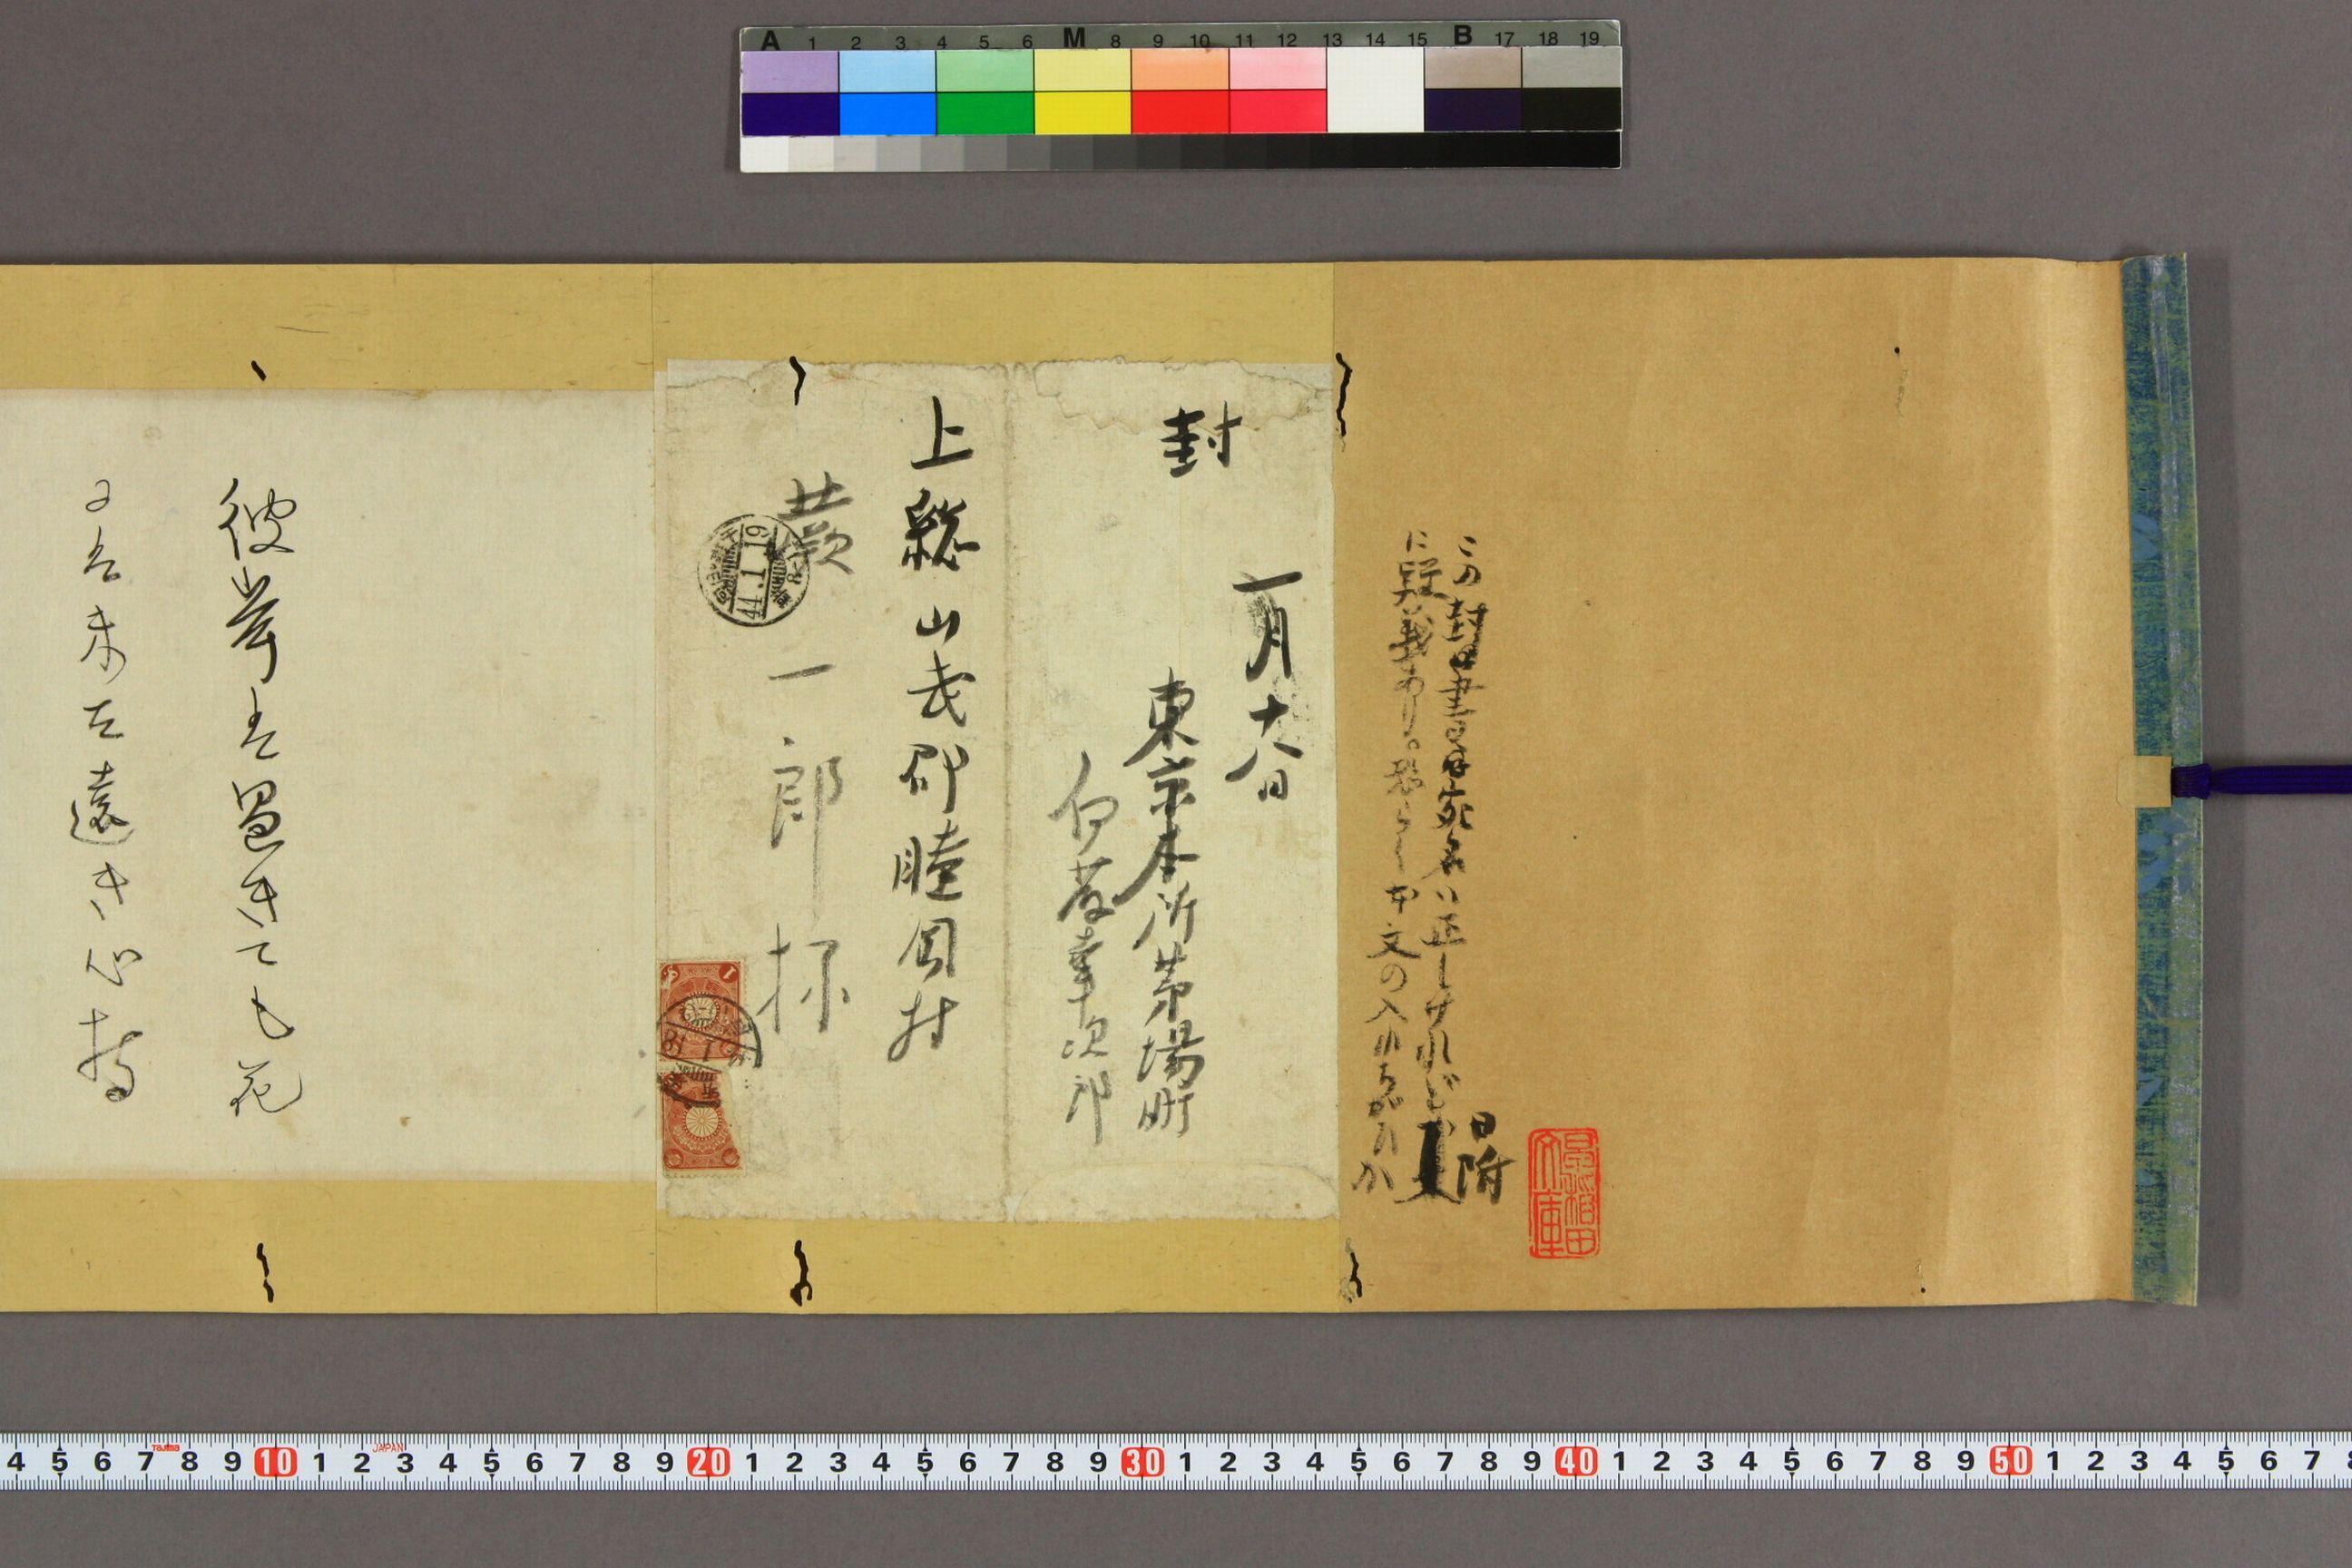 A 1 2 3 4 5 6 M 8 9 10 11 12 13 14 15 B 17 18 19
日附
この封書は宛名は正しけれど
に疑義あり。恐らく本文の入れちがひか
早稲田文庫
一月十八日
封
東京本所茅場町
伊藤幸次郎
上総山武郡睦岡村
蕨 一郎様
44.1.19
彼岸は過きても花
は未た遠き心持
4 5 6 7 8 9 10 1 2 3 4 5 6 7 8 9 20 1 2 3 4 5 6 7 8 9 30 1 2 3 4 5 6 7 8 9 40 1 2 3 4 5 6 7 8 9 50 1 2 3 4 5 6 7
Tajima JAPAN